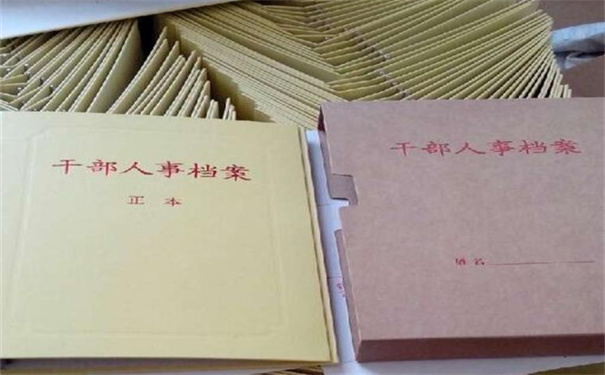 干部人事档案
正本
干部人事档案
姓名